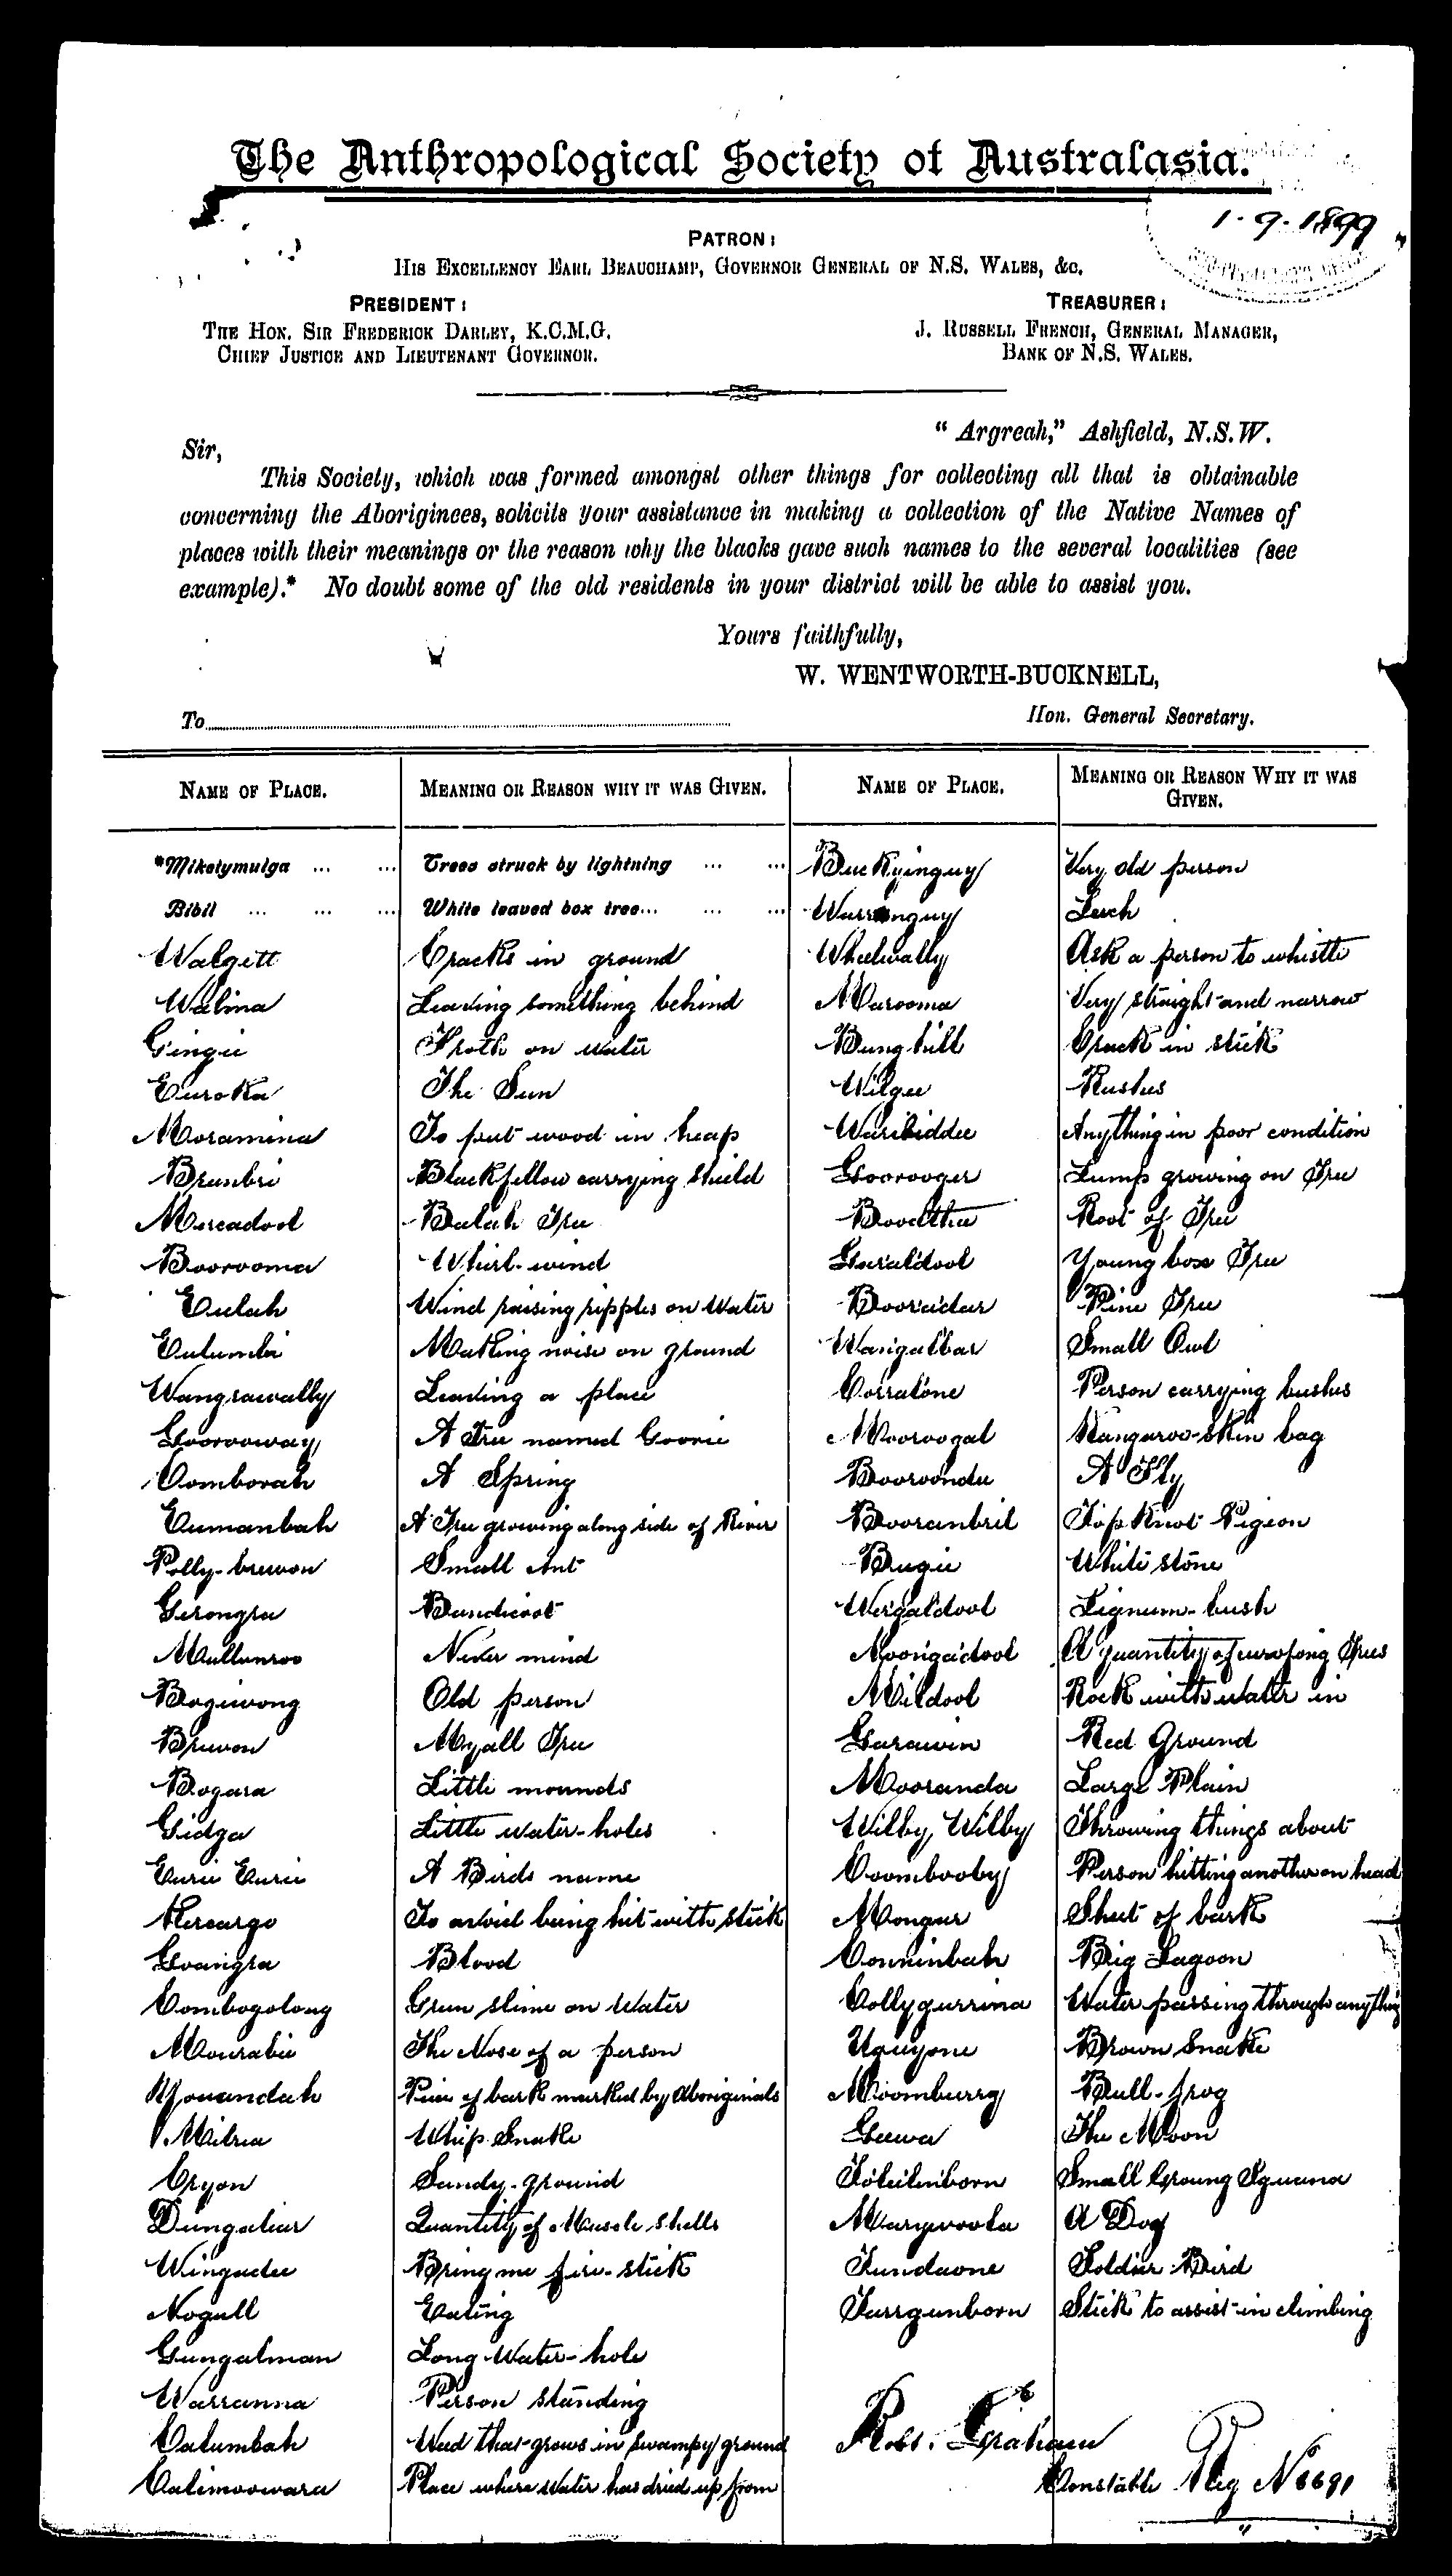 The Anthropological Society of Australasia.
1-9-1899
PATRON:
HIS EXCELLENCY EARL BEAUCHAMP, GOVERNOR GENERAL OF N.S. WALES, &C.
PRESIDENT:
THE HON. SIR FREDERICK DARLEY, K.C.M.G.
CHIEF JUSTICE AND LIEUTENANT GOVERNOR.
TREASURER:
J. RUSSELL FRENCH, GENERAL MANAGER,
BANK OF N.S. WALES.
"Argreah," Ashfield, N.S.W.
Sir,
This Society, which was formed amongst other things for collecting all that is obtainable
concerning the Aborigines, solicits your assistance in making a collection of the Native Names of
places with their meanings or the reason why the blacks gave such names to the several localities (see
example).* No doubt some of the old residents in your district will be able to assist you.
Yours faithfully,
W. WENTWORTH-BUCKNELL,
Hon. General Secretary.
To
NAME OF PLACE. MEANING OR REASON WHY IT WAS GIVEN.
*Miketymulga ... ... Trees struck by lightning ... ...
Bibil ... ... ... White leaved box tree... ... ...
Walgett Cracks in ground
Walina Leaving something behind
Gingie Froth on water
Euroka The Sun
Moramina To put wood in heap
Brunbri Blackfellow carrying shield
Mercadool Balah Tree
Boorooma Whirl-wind
Eulah Wind raising ripples on Water
Eulumbi Making noise on ground
Wangrawally Leaving a place
Goorooway A Tree named Goorie
Comborah A Spring
Eumanbah A Tree growing along side of River
Polly-brewon Small Ant
Gerongra Bandicoot
Mullunroo Never mind
Bogewong Old person
Brewon Myall Tree
Bogara Little mounds
Gidga Little water-holes
Eurie Eurie A Birds name
Kercargo To avoid being hit with stick
Goangra Blood
Combogolong Green slime on Water
Mourabie The Nose of a person
Youandah Piece of bark marked by Aboriginals
Milrea Whip Snake
Cryon Sandy-ground
Dungalear Quantity of Mussle shells
Wingadee Bring me fire-stick
Nogull Eating
Gungalman Long Water-hole
Warranna Person standing
Calumbah Weed that grows in swampy ground
Calimoowara Place where Water has dried up from
NAME OF PLACE. MEANING OR REASON WHY IT WAS
GIVEN.
Buckyinguy Very old person
Warranguy Leech
Wheelwally Ask a person to whistle
Marooma Very straight and narrow
Bunghill Crack in stick
Wilgee Rushes
Waribiddee Anything in poor condition
Goorooger Lump growing on Tree
Booeltha Root of Tree
Guraldool Young box Tree
Booradar Pine Tree
Waigalbar Small Owl
Corralone Person carrying bushes
Mooroogal Kangaroo-skin bag
Booroondu A Fly
Booranbril Top Knot Pigeon
Bugie White stone
Wergaldool Lignum-bush
Noongadool A quantity of currajong Trees
Mildool Rock with water in
Garawin Red Ground
Mooranda Large Plain
Wilby, Wilby Throwing things about
Coombooby Person hitting another on head
Mongur Sheet of bark
Conninbah Big Lagoon
Collygurrina Water passing through anything
Uguyone Brown Snake
Moomburry Bull-frog
Geewa The Moon
Toteilnborn Small Young Iguana
Marywoola A Dog
Tundaone Soldier Bird
Turrgunborn Stick to assist in climbing
Robt. Graham
Constable Reg No 6691